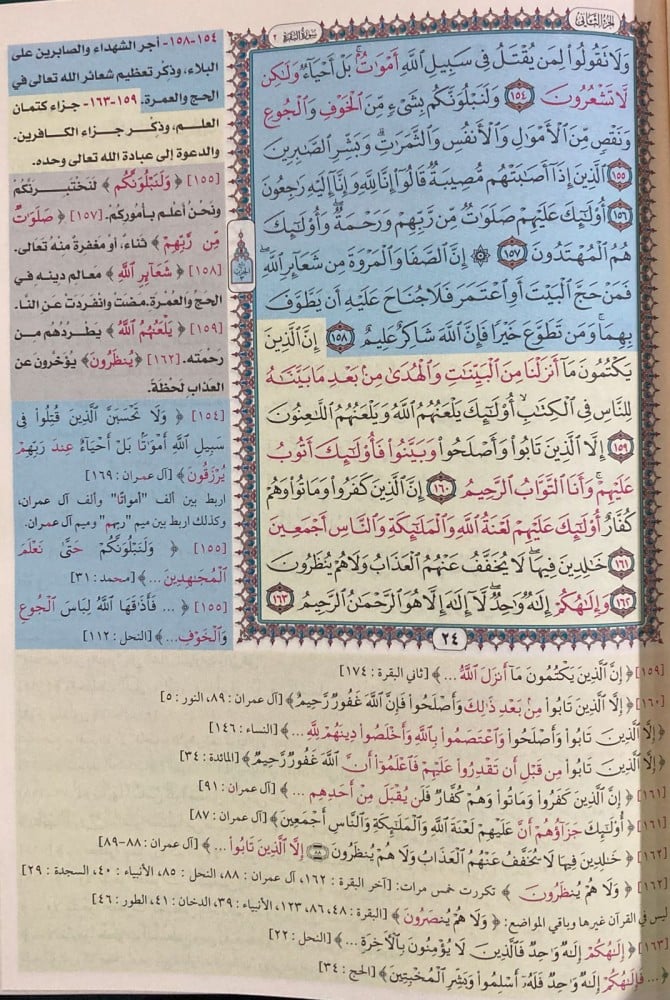 الجزء الثاني
سورة البقرة ٢
وَلَا تَقُولُوا۟ لِمَن يُقْتَلُ فِى سَبِيلِ ٱللَّهِ أَمْوَٰتٌۢ ۚ بَلْ أَحْيَآءٌ وَلَٰكِن
لَّا تَشْعُرُونَ ١٥٤ وَلَنَبْلُوَنَّكُم بِشَىْءٍ مِّنَ ٱلْخَوْفِ وَٱلْجُوعِ
وَنَقْصٍ مِّنَ ٱلْأَمْوَٰلِ وَٱلْأَنفُسِ وَٱلثَّمَرَٰتِ ۗ وَبَشِّرِ ٱلصَّٰبِرِينَ
١٥٥ ٱلَّذِينَ إِذَآ أَصَٰبَتْهُم مُّصِيبَةٌ قَالُوٓا۟ إِنَّا لِلَّهِ وَإِنَّآ إِلَيْهِ رَٰجِعُونَ
١٥٦ أُو۟لَٰٓئِكَ عَلَيْهِمْ صَلَوَٰتٌ مِّن رَّبِّهِمْ وَرَحْمَةٌ ۖ وَأُو۟لَٰٓئِكَ
هُمُ ٱلْمُهْتَدُونَ ١٥٧ ۞ إِنَّ ٱلصَّفَا وَٱلْمَرْوَةَ مِن شَعَآئِرِ ٱللَّهِ ۖ
فَمَنْ حَجَّ ٱلْبَيْتَ أَوِ ٱعْتَمَرَ فَلَا جُنَاحَ عَلَيْهِ أَن يَطَّوَّفَ
بِهِمَا ۚ وَمَن تَطَوَّعَ خَيْرًا فَإِنَّ ٱللَّهَ شَاكِرٌ عَلِيمٌ ١٥٨ إِنَّ ٱلَّذِينَ
يَكْتُمُونَ مَآ أَنزَلْنَا مِنَ ٱلْبَيِّنَٰتِ وَٱلْهُدَىٰ مِنۢ بَعْدِ مَا بَيَّنَّٰهُ
لِلنَّاسِ فِى ٱلْكِتَٰبِ ۙ أُو۟لَٰٓئِكَ يَلْعَنُهُمُ ٱللَّهُ وَيَلْعَنُهُمُ ٱللَّٰعِنُونَ
١٥٩ إِلَّا ٱلَّذِينَ تَابُوا۟ وَأَصْلَحُوا۟ وَبَيَّنُوا۟ فَأُو۟لَٰٓئِكَ أَتُوبُ
عَلَيْهِمْ ۚ وَأَنَا ٱلتَّوَّابُ ٱلرَّحِيمُ ١٦٠ إِنَّ ٱلَّذِينَ كَفَرُوا۟ وَمَاتُوا۟ وَهُمْ
كُفَّارٌ أُو۟لَٰٓئِكَ عَلَيْهِمْ لَعْنَةُ ٱللَّهِ وَٱلْمَلَٰٓئِكَةِ وَٱلنَّاسِ أَجْمَعِينَ
١٦١ خَٰلِدِينَ فِيهَا ۖ لَا يُخَفَّفُ عَنْهُمُ ٱلْعَذَابُ وَلَا هُمْ يُنظَرُونَ
١٦٢ وَإِلَٰهُكُمْ إِلَٰهٌ وَٰحِدٌ ۖ لَّآ إِلَٰهَ إِلَّا هُوَ ٱلرَّحْمَٰنُ ٱلرَّحِيمُ ١٦٣
٢٤
١٥٤-١٥٨- أجر الشهداء والصابرين على
البلاء، وذكر تعظيم شعائر الله تعالى في
الحج والعمرة. ١٥٩-١٦٣- جزاء كتمان
العلم، وذكر جزاء الكافرين.
والدعوة إلى عبادة الله تعالى وحده.
[١٥٥] ﴿وَلَنَبْلُوَنَّكُم﴾ لَنَخْتَبِرَنَّكُمْ
ونَحْنُ أعلم بأموركُمْ. [١٥٧] ﴿صَلَوَٰتٌ
مِّن رَّبِّهِمْ﴾ ثناء، أو مَغفرة منهُ تَعالى.
[١٥٨] ﴿شَعَآئِرِ ٱللَّهِ﴾ معالم دينه في
الحَجّ والعُمْرة. مضت وانفردت عن النا.
[١٥٩] ﴿يَلْعَنُهُمُ ٱللَّهُ﴾ يطْرُدُهُم من
رحْمته. [١٦٢] ﴿يُنظَرُونَ﴾ يُؤخّرون عن
العذاب لحْظة.
[١٥٤] ﴿وَلَا تَحْسَبَنَّ ٱلَّذِينَ قُتِلُوا۟ فِى
سَبِيلِ ٱللَّهِ أَمْوَٰتًۢا بَلْ أَحْيَآءٌ عِندَ رَبِّهِمْ
يُرْزَقُونَ﴾ [آل عمران: ١٦٩]
اربط بين ألف "أمواتًا" وألف آل عمران،
وكذلك اربط بين ميم "ربهم" وميم آل عمران.
[١٥٥] ﴿وَلَنَبْلُوَنَّكُمْ حَتَّىٰ نَعْلَمَ
ٱلْمُجَٰهِدِينَ ...﴾ [محمد: ٣١]
[١٥٥] ﴿... فَأَذَٰقَهَا ٱللَّهُ لِبَاسَ ٱلْجُوعِ
وَٱلْخَوْفِ ...﴾ [النحل: ١١٢]
[١٥٩] ﴿إِنَّ ٱلَّذِينَ يَكْتُمُونَ مَآ أَنزَلَ ٱللَّهُ ...﴾ [ثاني البقرة: ١٧٤]
[١٦٠] ﴿إِلَّا ٱلَّذِينَ تَابُوا۟ مِنۢ بَعْدِ ذَٰلِكَ وَأَصْلَحُوا۟ فَإِنَّ ٱللَّهَ غَفُورٌ رَّحِيمٌ﴾ [آل عمران: ٨٩، النور: ٥]
﴿إِلَّا ٱلَّذِينَ تَابُوا۟ وَأَصْلَحُوا۟ وَٱعْتَصَمُوا۟ بِٱللَّهِ وَأَخْلَصُوا۟ دِينَهُمْ لِلَّهِ ...﴾ [النساء: ١٤٦]
﴿إِلَّا ٱلَّذِينَ تَابُوا۟ مِن قَبْلِ أَن تَقْدِرُوا۟ عَلَيْهِمْ فَٱعْلَمُوٓا۟ أَنَّ ٱللَّهَ غَفُورٌ رَّحِيمٌ﴾ [المائدة: ٣٤]
[١٦١] ﴿إِنَّ ٱلَّذِينَ كَفَرُوا۟ وَمَاتُوا۟ وَهُمْ كُفَّارٌ فَلَن يُقْبَلَ مِنْ أَحَدِهِم ...﴾ [آل عمران: ٩١]
[١٦١] ﴿أُو۟لَٰٓئِكَ جَزَآؤُهُمْ أَنَّ عَلَيْهِمْ لَعْنَةَ ٱللَّهِ وَٱلْمَلَٰٓئِكَةِ وَٱلنَّاسِ أَجْمَعِينَ﴾ [آل عمران: ٨٧]
[١٦٢] ﴿خَٰلِدِينَ فِيهَا لَا يُخَفَّفُ عَنْهُمُ ٱلْعَذَابُ وَلَا هُمْ يُنظَرُونَ ٨٨ إِلَّا ٱلَّذِينَ تَابُوا۟ ...﴾ [آل عمران: ٨٨-٨٩]
[١٦٢] ﴿وَلَا هُمْ يُنظَرُونَ﴾ تكررت خمس مرات: [آخر البقرة: ١٦٢، آل عمران: ٨٨، النحل: ٨٥، الأنبياء: ٤٠، السجدة: ٢٩]
ليس في القرآن غيرها وباقي المواضع: ﴿وَلَا هُمْ يُنصَرُونَ﴾ [البقرة: ٤٨، ٨٦، ١٢٣، الأنبياء: ٣٩، الدخان: ٤١، الطور: ٤٦]
[١٦٣] ﴿إِلَٰهُكُمْ إِلَٰهٌ وَٰحِدٌ فَٱلَّذِينَ لَا يُؤْمِنُونَ بِٱلْءَاخِرَةِ ...﴾ [النحل: ٢٢]
﴿... فَإِلَٰهُكُمْ إِلَٰهٌ وَٰحِدٌ فَلَهُۥٓ أَسْلِمُوا۟ وَبَشِّرِ ٱلْمُخْبِتِينَ﴾ [الحج: ٣٤]